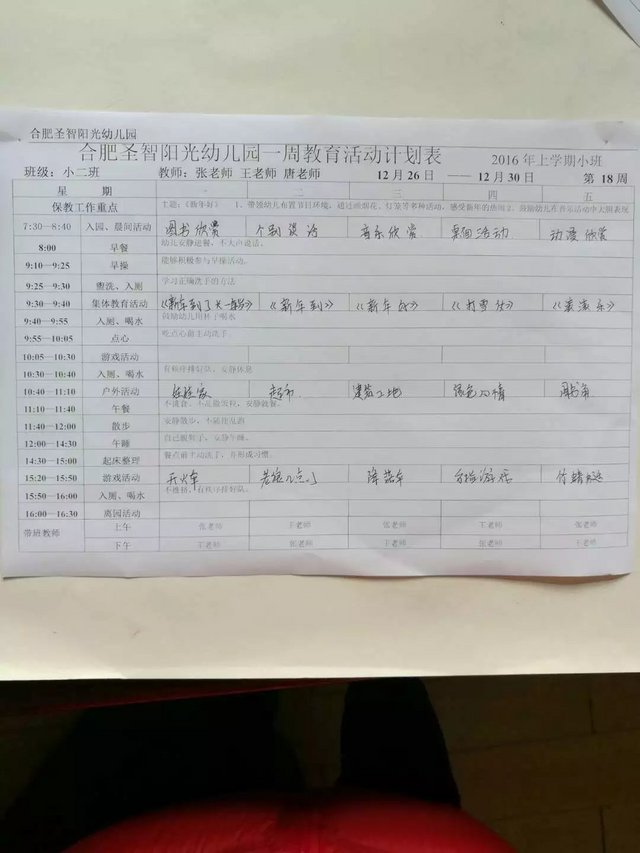 合肥圣智阳光幼儿园
合肥圣智阳光幼儿园一周教育活动计划表 2016年上学期小班
班级：小二班 教师：张老师 王老师 唐老师 12月26日 —— 12月30日 第18周
星 期 一 二 三 四 五
保教工作重点 主题：《新年好》 1、带领幼儿布置节日环境，通过放烟花、灯笼等多种活动，感受新年的热闹 2、鼓励幼儿在音乐活动中大胆表现
7:30－8:40 入园、晨间活动 图书欣赏 个别谈话 音乐欣赏 桌面活动 动漫欣赏
8:00 早餐 幼儿安静进餐，不大声说话。
9:10－9:25 早操 能够积极参与早操活动。
9:25－9:30 盥洗、入厕 学习正确洗手的方法
9:30－9:40 集体教育活动 《新年到了大一岁》 《新年到》 《新年》 《打雪仗》
9:40－9:55 入厕、喝水 鼓励幼儿用杯子喝水
9:55－10:05 点心 吃点心前主动洗手
10:05－10:30 游戏活动
10:30－10:40 入厕、喝水 有秩序排好队，安静休息
10:40－11:10 户外活动 娃娃家 超市 建筑工地 图书角
11:10－11:40 午餐 不挑食、不乱撒饭粒，安静就餐。
11:40－12:00 散步 安静散步，不能往乱跑
12:00－14:30 午睡 自己脱鞋子，安静午睡。
14:30－15:00 起床整理 餐点前主动洗手，并形成习惯。
15:20－15:50 游戏活动 开火车 老狼几点了 降落伞 手指游戏
15:50－16:00 入厕、喝水 不推挤，有秩序排好队。
16:00－16:30 离园活动
带班教师 上午 张老师 王老师 张老师 王老师 张老师
下午 王老师 张老师 王老师 张老师 王老师